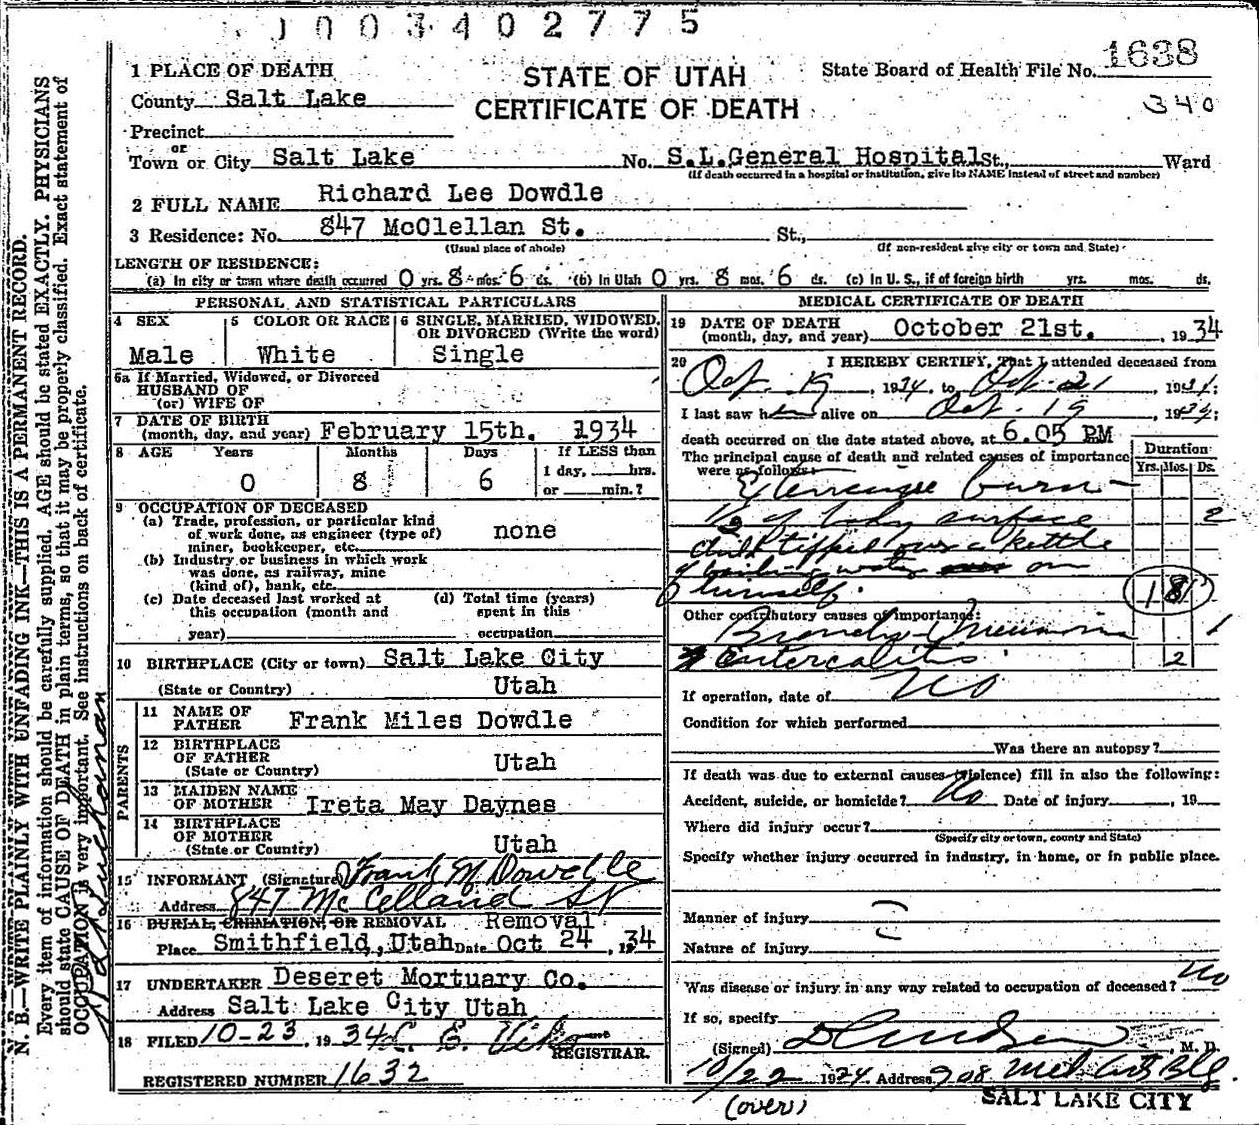 J 0 0 3 4 0 2 7 7 5
1638
State Board of Health File No.
340
STATE OF UTAH
CERTIFICATE OF DEATH
1 PLACE OF DEATH
County Salt Lake
Precinct
or
Town or City Salt Lake No. S.L.General Hospital St., Ward
(If death occurred in a hospital or institution, give its NAME instead of street and number)
2 FULL NAME Richard Lee Dowdle
3 Residence: No. 847 McClellan St. St.,
(Usual place of abode) (If non-resident give city or town and State)
LENGTH OF RESIDENCE:
(a) In city or town where death occurred 0 yrs. 8 mos. 6 ds. (b) In Utah 0 yrs. 8 mos. 6 ds. (c) In U. S., if of foreign birth yrs. mos. ds.
PERSONAL AND STATISTICAL PARTICULARS
4 SEX 5 COLOR OR RACE 6 SINGLE, MARRIED, WIDOWED, OR DIVORCED (Write the word)
Male White Single
6a If Married, Widowed, or Divorced
HUSBAND OF
(or) WIFE OF
7 DATE OF BIRTH
(month, day, and year) February 15th. 1934
8 AGE Years Months Days If LESS than
1 day, hrs.
0 8 6 or min.?
9 OCCUPATION OF DECEASED
(a) Trade, profession, or particular kind
of work done, as engineer (type of) none
miner, bookkeeper, etc.
(b) Industry or business in which work
was done, as railway, mine
(kind of), bank, etc.
(c) Date deceased last worked at (d) Total time (years)
this occupation (month and spent in this
year) occupation
10 BIRTHPLACE (City or town) Salt Lake City
(State or Country) Utah
PARENTS
11 NAME OF
FATHER Frank Miles Dowdle
12 BIRTHPLACE
OF FATHER Utah
(State or Country)
13 MAIDEN NAME
OF MOTHER Ireta May Daynes
14 BIRTHPLACE
OF MOTHER
(State or Country) Utah
15 INFORMANT (Signature) Frank M Dowdle
Address 847 McCelland St
16 BURIAL, CREMATION, OR REMOVAL Removal
Place Smithfield, Utah Date Oct 24, 1934
17 UNDERTAKER Deseret Mortuary Co.
Address Salt Lake City Utah
18 FILED 10-23 1934
REGISTRAR.
REGISTERED NUMBER 1632
MEDICAL CERTIFICATE OF DEATH
19 DATE OF DEATH
(month, day, and year) October 21st. , 1934
20 I HEREBY CERTIFY, That I attended deceased from
Oct. 19, 1934, to Oct. 21, 1934:
I last saw h alive on Oct. 19, 1934:
death occurred on the date stated above, at 6.05 PM
The principal cause of death and related causes of importance
were as follows: Duration
Yrs. Mos. Ds.
Extensive burn -
1/2 of body surface 2
child tipped over a kettle
of boiling water on
himself. 181
Other contributory causes of importance:
Broncho Pneumonia 1
Enterocolitis 2
If operation, date of No
Condition for which performed
Was there an autopsy?
If death was due to external causes (violence) fill in also the following:
Accident, suicide, or homicide? No Date of injury , 19
Where did injury occur?
(Specify city or town, county and State)
Specify whether injury occurred in industry, in home, or in public place.
Manner of injury
Nature of injury
Was disease or injury in any way related to occupation of deceased? No
If so, specify
(Signed) , M. D.
10/22 1934 Address 908 Med Arts Blg.
(over) SALT LAKE CITY
N. B.—WRITE PLAINLY WITH UNFADING INK—THIS IS A PERMANENT RECORD.
Every item of information should be carefully supplied. AGE should be stated EXACTLY. PHYSICIANS
should state CAUSE OF DEATH in plain terms, so that it may be properly classified. Exact statement of
OCCUPATION is very important. See instructions on back of certificate.